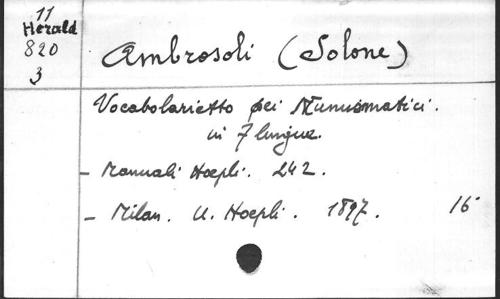 11
Herald
820
3
Ambrosoli (Solone)
Vocabolarietto pei Numismatici.
in 7 lingue.
- Manuali Hoepli. 242.
- Milan. U. Hoepli. 1897. 16°